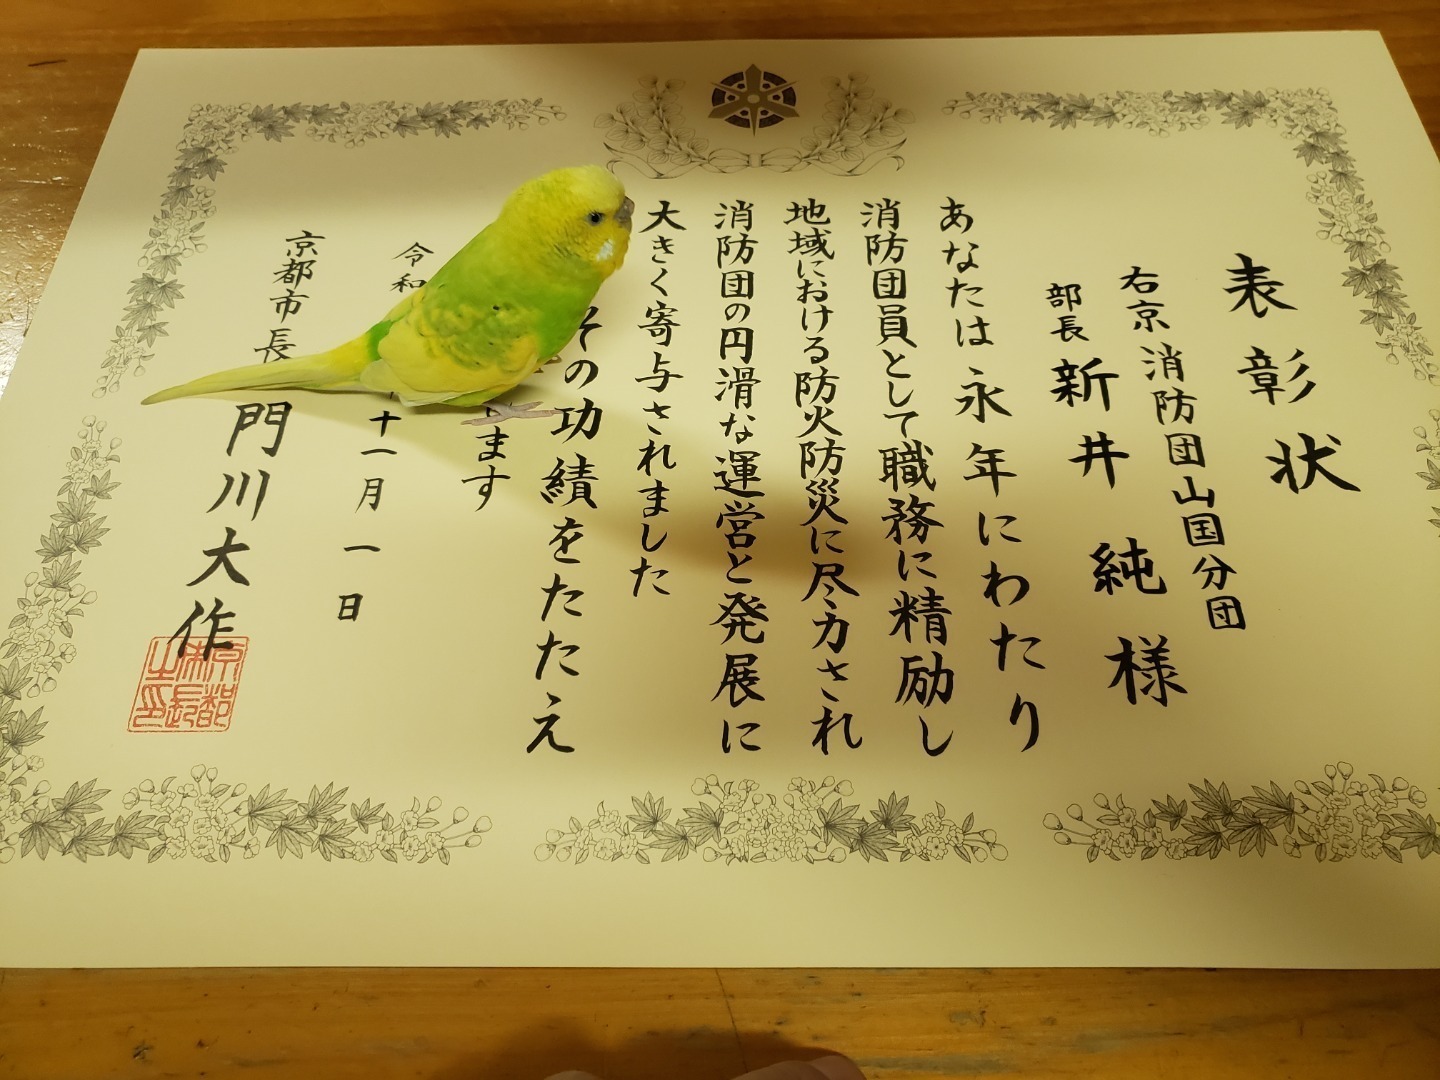 表彰状
右京消防団山国分団
部長 新井 純 様
あなたは永年にわたり
消防団員として職務に精励し
地域における防火防災に尽力され
消防団の円滑な運営と発展に
大きく寄与されました
その功績をたたえ
ます
令和 十一月一日
京都市長 門川大作
京都市長之印